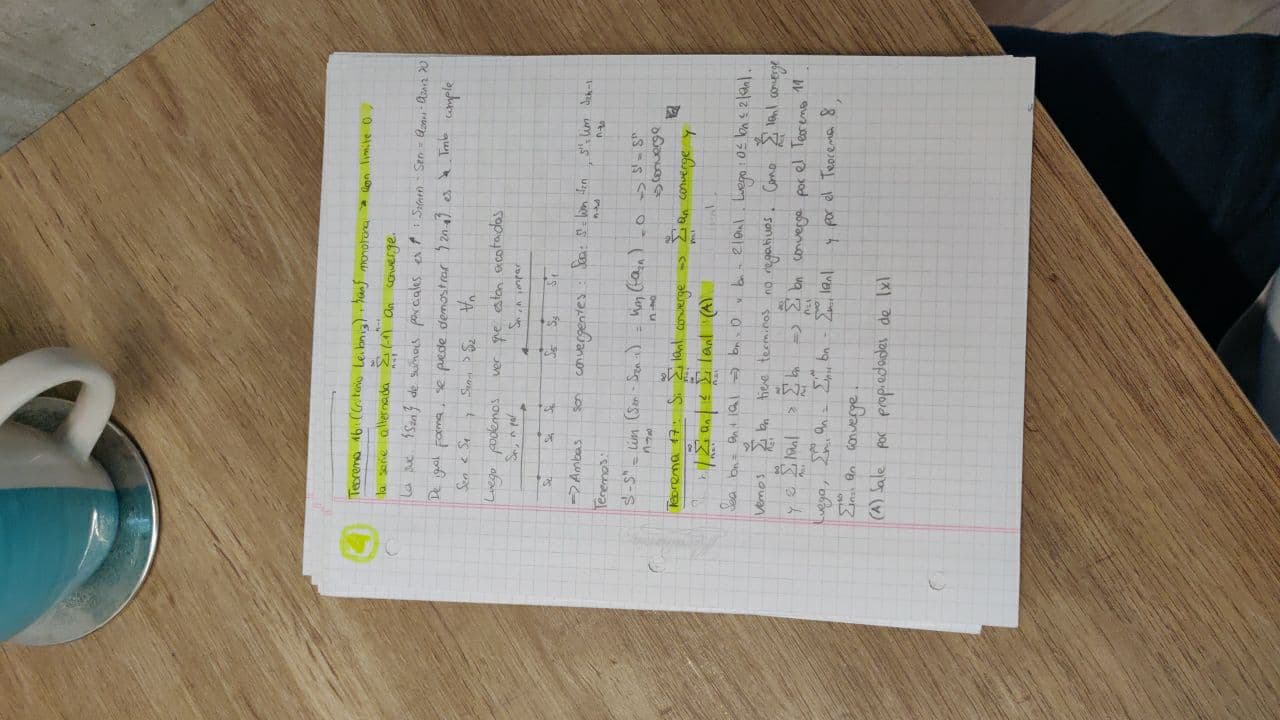 4
Teorema 16: (Criterio Leibniz). {an} monotona ↘ con limite 0,
la serie alternada ∑_{n=1}^{∞} (-1)^{n-1} an converge.
La suc {S2n} de sumas parciales es ↑ : S2(n+1) - S2n = a2n+1 - a2n+2 > 0
De igual forma, se puede demostrar {2n-1} es ↘. Tmb cumple
S2n < S1 y S2n-1 > S2 ∀n
Luego podemos ver que estan acotadas
Sn, n par Sn, n impar
S2 S4 S6 S5 S3 S1
=> Ambas son convergentes : Sea: S' = lim_{n→∞} S2n , S'' = lim_{n→∞} S2n-1
Tenemos:
S' - S'' = lim_{n→∞} (S2n - S2n-1) = lim_{n→∞} (-a2n) = 0 => S' = S''
=> converge
Teorema 17: Si ∑_{n=1}^{∞} |an| converge => ∑_{n=1}^{∞} an converge y
|∑_{n=1}^{∞} an| ≤ ∑_{n=1}^{∞} |an| (A)
Sea bn = an + |an| => bn = 0 v bn = 2|an|. Luego : 0 ≤ bn ≤ 2|an|.
Vemos ∑_{n=1}^{∞} bn tiene terminos no negativos. Como ∑_{n=1}^{∞} |an| converge
y 2 ∑_{n=1}^{∞} |an| > ∑_{n=1}^{∞} bn => ∑_{n=1}^{∞} bn converge por el Teorema 11.
Luego, ∑_{n=1}^{∞} an = ∑_{n=1}^{∞} bn - ∑_{n=1}^{∞} |an| y por el Teorema 8,
∑_{n=1}^{∞} an converge.
(A) Sale por propiedades de |x|